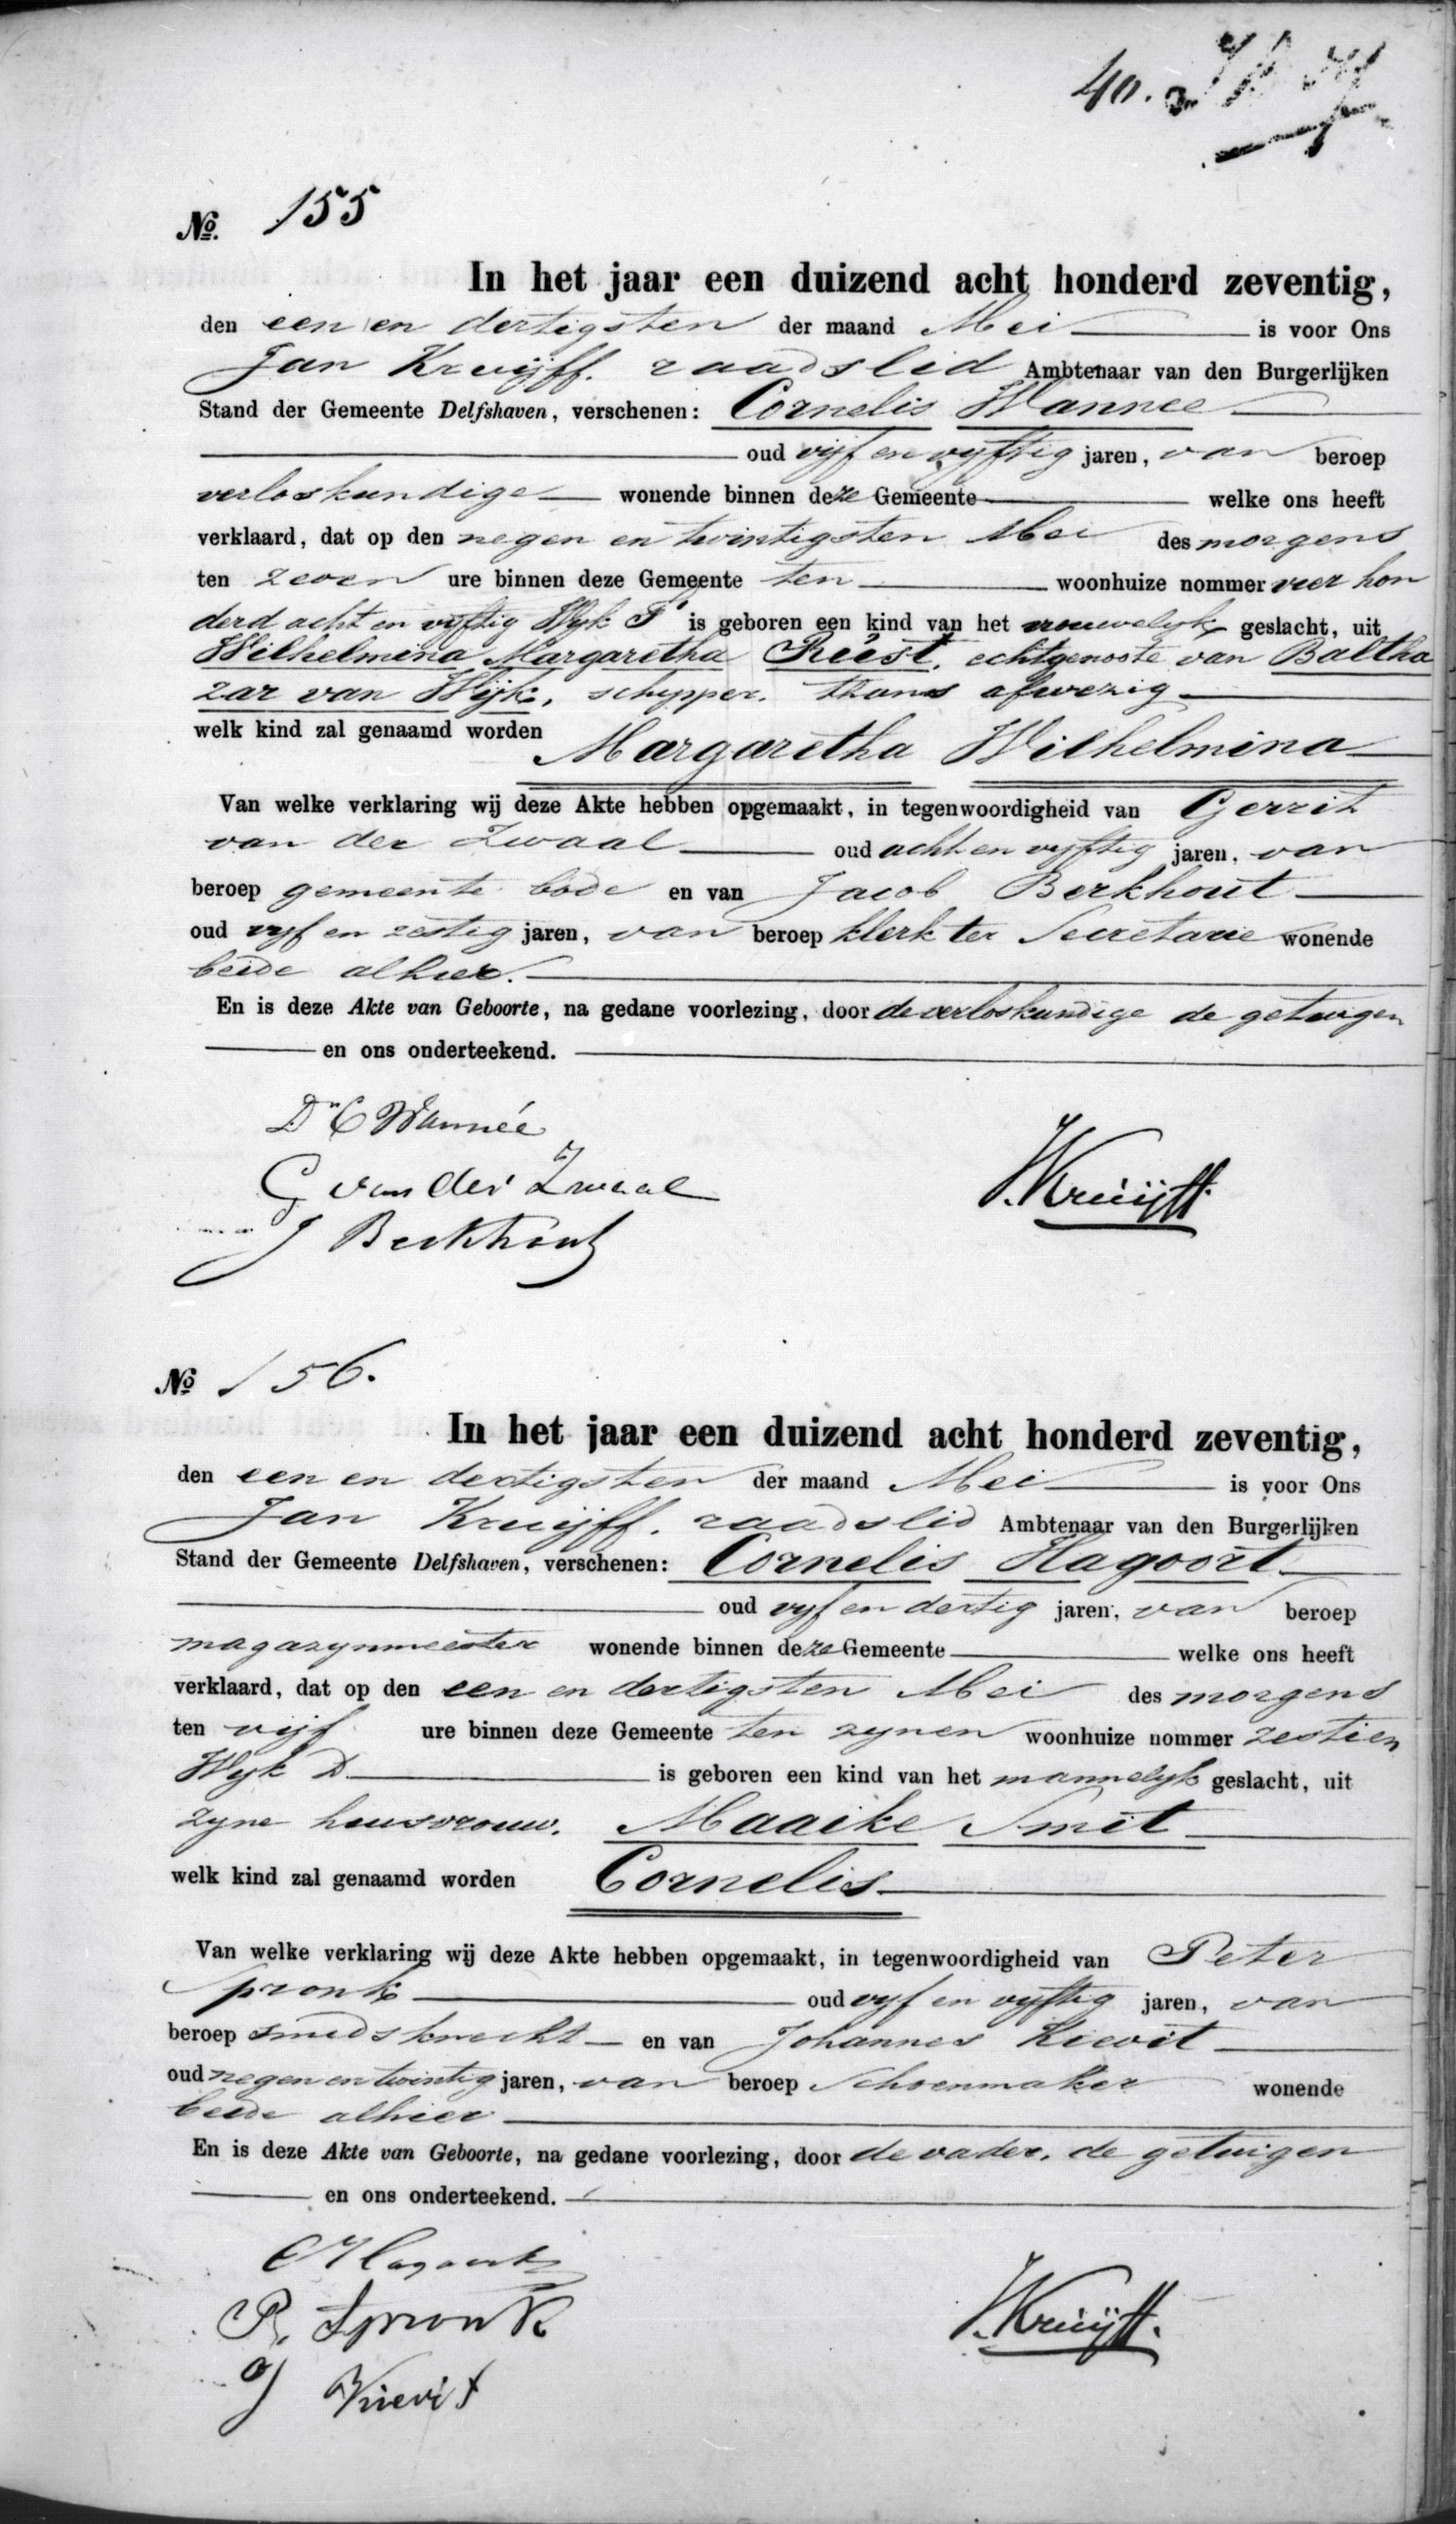 40.
No. 155
In het jaar een duizend acht honderd zeventig,
den een en dertigsten der maand Mei is voor Ons
Jan Kruijff. raadslid Ambtenaar van den Burgerlijken
Stand der Gemeente Delfshaven, verschenen: Cornelis Wannee
oud vijf en vijftig jaren, van beroep
verloskundige wonende binnen deze Gemeente welke ons heeft
verklaard, dat op den negen en twintigsten Mei des morgens
ten zeven ure binnen deze Gemeente ten woonhuize nommer vier hon
derd acht en vijftig Wijk is geboren een kind van het vrouwelijk geslacht, uit
Wilhelmina Margaretha Reest, echtgenoote van Baltha
zar van Wijk, schipper. thans afwezig
welk kind zal genaamd worden Margaretha Wilhelmina
Van welke verklaring wij deze Akte hebben opgemaakt, in tegenwoordigheid van Gerrit
van der Zwaal oud acht en vijftig jaren, van
beroep gemeente bode en van Jacob Berkhout
oud vijf en zestig jaren, van beroep klerk ter Secretarie wonende
beide alhier.
En is deze Akte van Geboorte, na gedane voorlezing, door de verloskundige de getuigen
en ons onderteekend.
Dr C Wannée
G van der Zwaal
J. Kruijff.
J Berkhout
No 156.
In het jaar een duizend acht honderd zeventig,
den een en dertigsten der maand Mei is voor Ons
Jan Kruijff. raadslid Ambtenaar van den Burgerlijken
Stand der Gemeente Delfshaven, verschenen: Cornelis Hagoort
oud vijf en dertig jaren, van beroep
magazijnmeester wonende binnen deze Gemeente welke ons heeft
verklaard, dat op den een en dertigsten Mei des morgens
ten vijf ure binnen deze Gemeente ten zijnen woonhuize nommer zestien
Wijk D is geboren een kind van het mannelijk geslacht, uit
zijne huisvrouw. Maaike Smit
welk kind zal genaamd worden Cornelis
Van welke verklaring wij deze Akte hebben opgemaakt, in tegenwoordigheid van Peter
Spronk oud vijf en vijftig jaren, van
beroep smidsknecht en van Johannes Kievit
oud negen en twintig jaren, van beroep Schoenmaker wonende
beide alhier
En is deze Akte van Geboorte, na gedane voorlezing, door de vader, de getuigen
en ons onderteekend.
C Hagoort
P. Spronk
J. Kruijff.
J Kievit